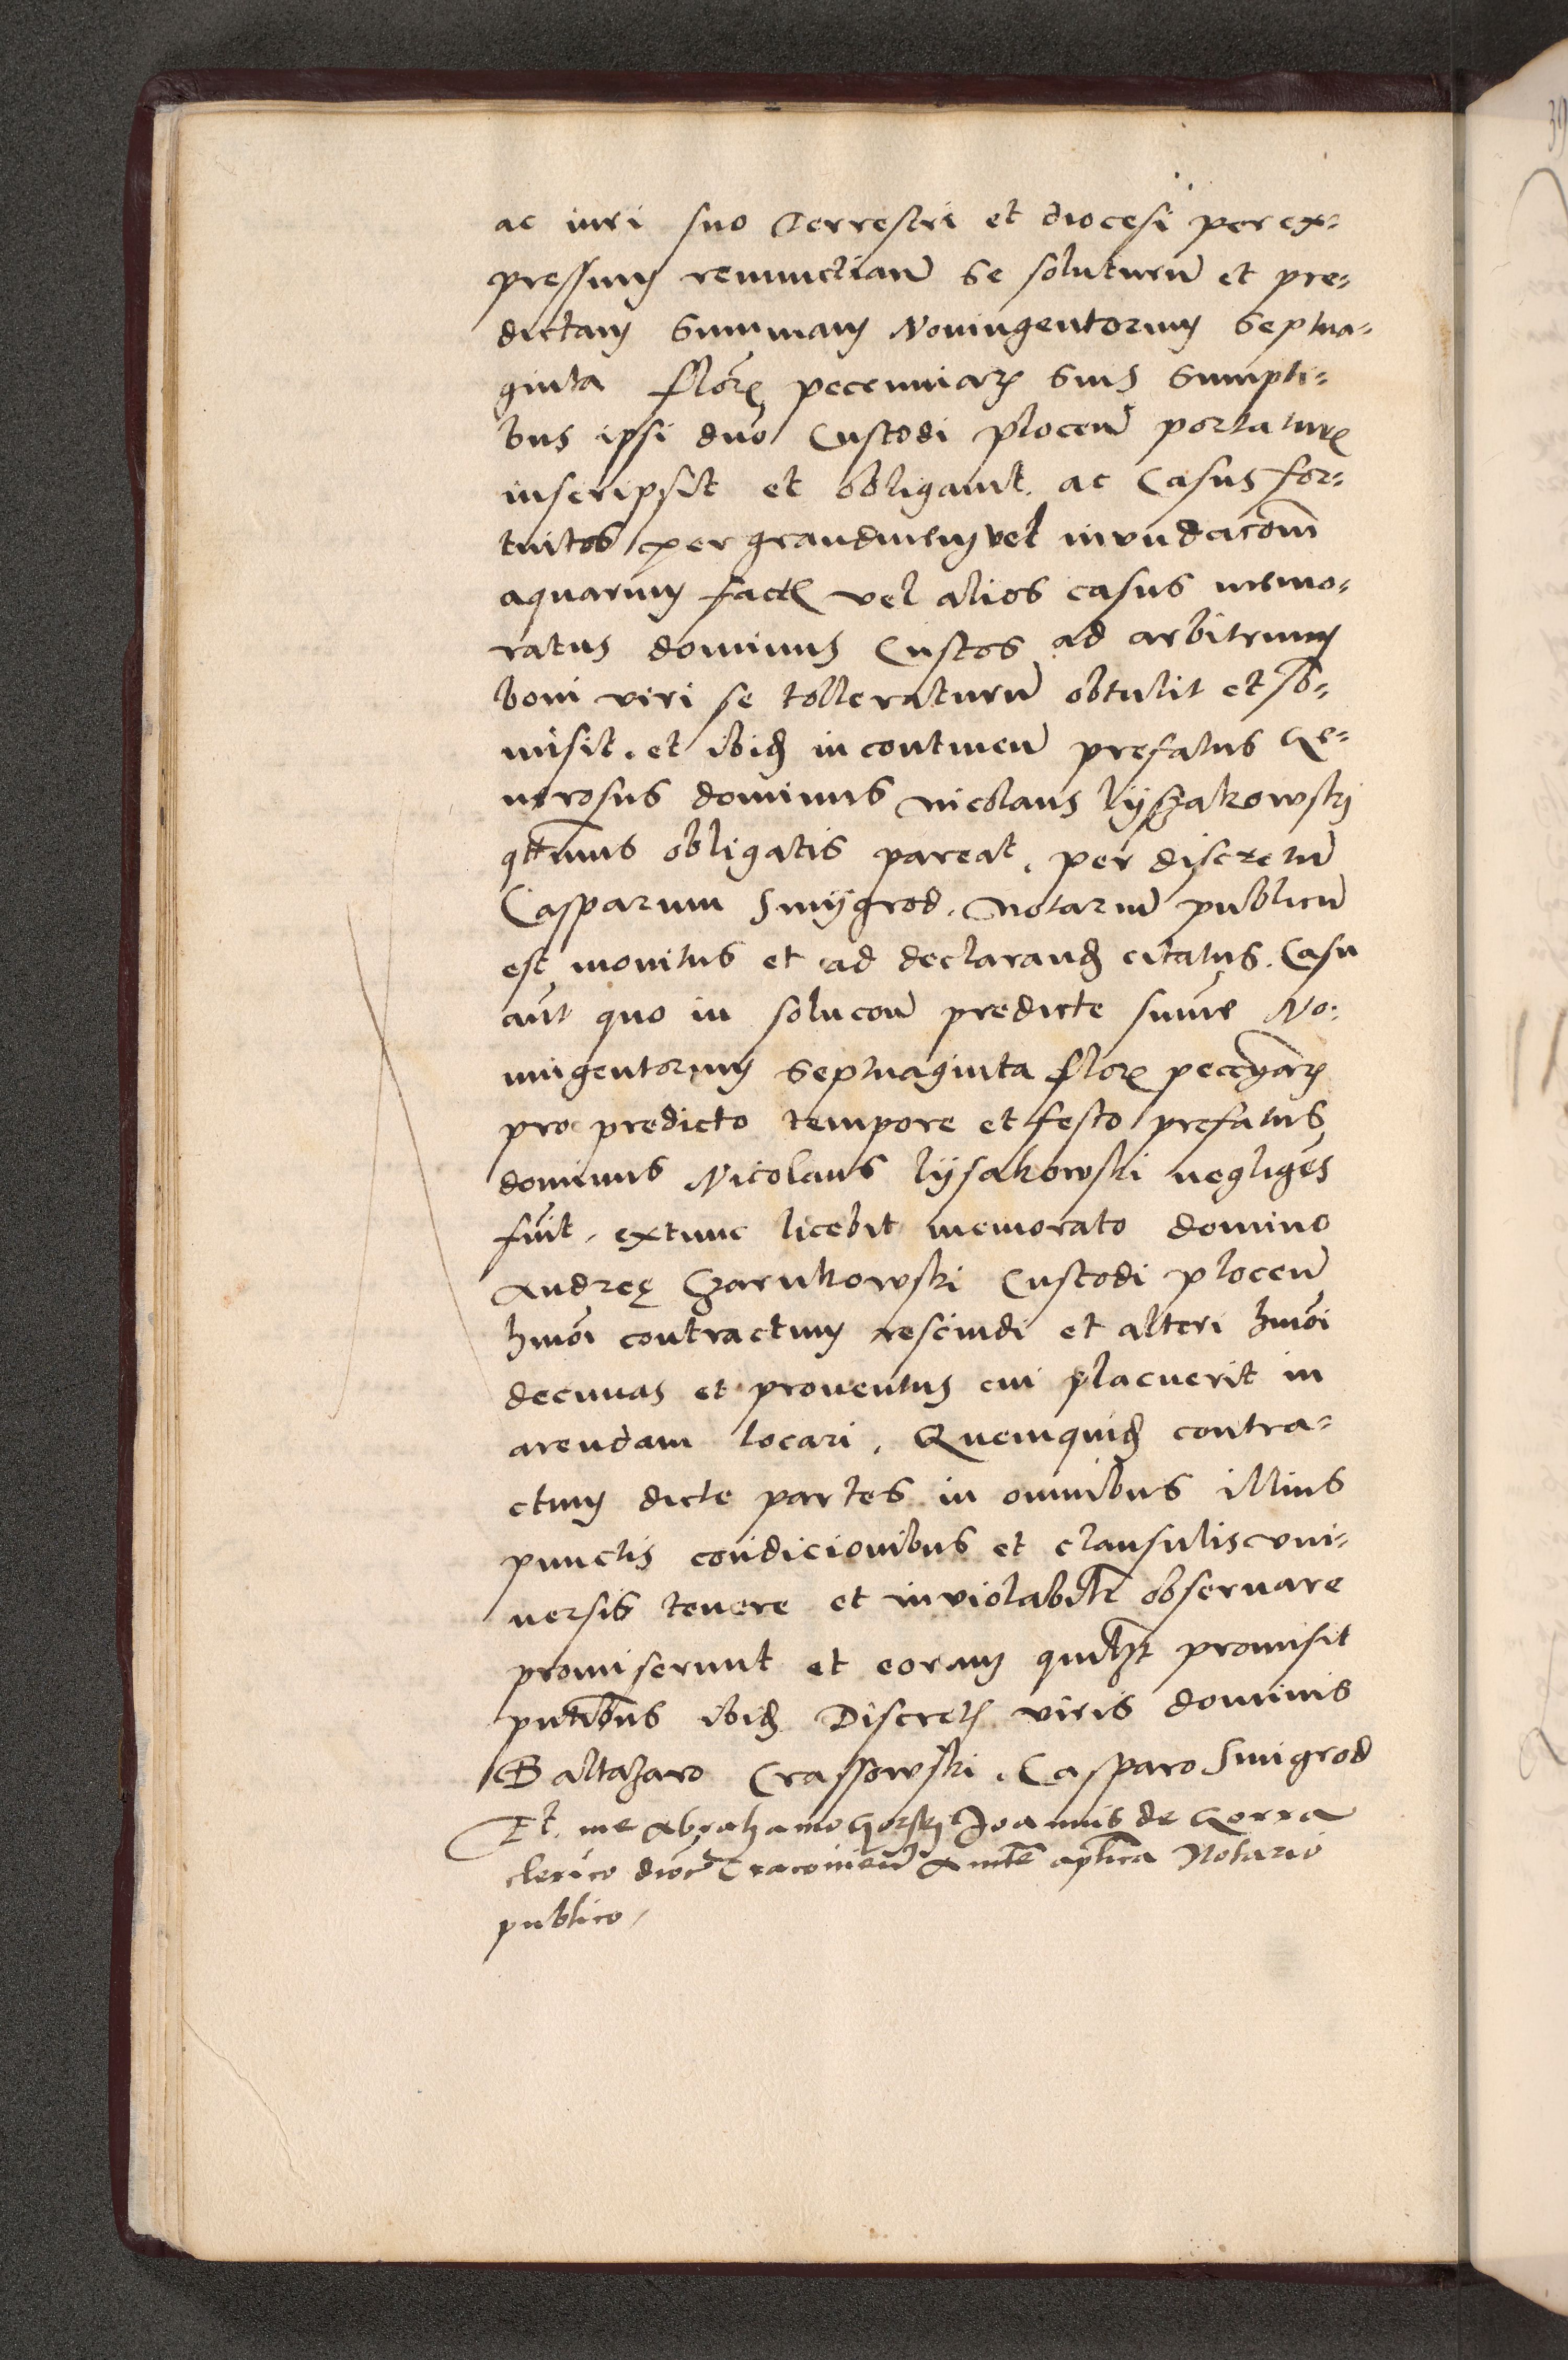 ac iuri suo Terrestri et diocesi per ex=
pressum renunctian̄ se soluturū et pre=
dictam Summam Noningentorum Septua=
ginta florꝭ pecuniarꝭ suis sumpti=
bus ipsi dno Custodi plocen̄ portaturꝭ
inscripsit et obligauit. ac Casus for=
tuitos per grandinem vel inundacōm̄
aquarum factꝭ vel alios casus memo=
ratus dominus Custos ad arbitrium
boni viri se tolleraturū obtulit et sb=
misit. et ibidꝫ in continen̄ prefatus Ge=
nerosus dominus nicolaus lÿszakowskj
qͭtenus obligatis pareat. per discretū
Casparum Smÿgrod. Notariū publicū
est monitus et ad declarandꝫ citatus. Casu
aūt quo in solucon̄ predicte sum̄e No=
ningentorum Septuaginta florꝭ pecuniarꝭ
pro predicto tempore et festo prefatus
dominus Nicolaus lÿsakowski negligēs
fūit. extunc licebit memorato domino
Andreę Czarnkowski Custodi plocen̄
hmōi contractum rescindi et alteri hmōi
decimas et prouentus cui placuerit in
arendam locari. Quemquidꝫ contra=
ctum dicte partes in omnibus illius
punctis condicionibus et clausulis vni=
uersis tenere et inviolabiłr obseruare
promiserunt et eorum quilꝫt promisit
pntibus ibidꝫ Discretꝭ viris dominis
Baltazaro Crassowski. Casparo Smigrod
Et me Abrahamo Gorskj Joannis de Gorra
clerico dioc̄ Cracouien̄ Aucte aplica Notario
publico.